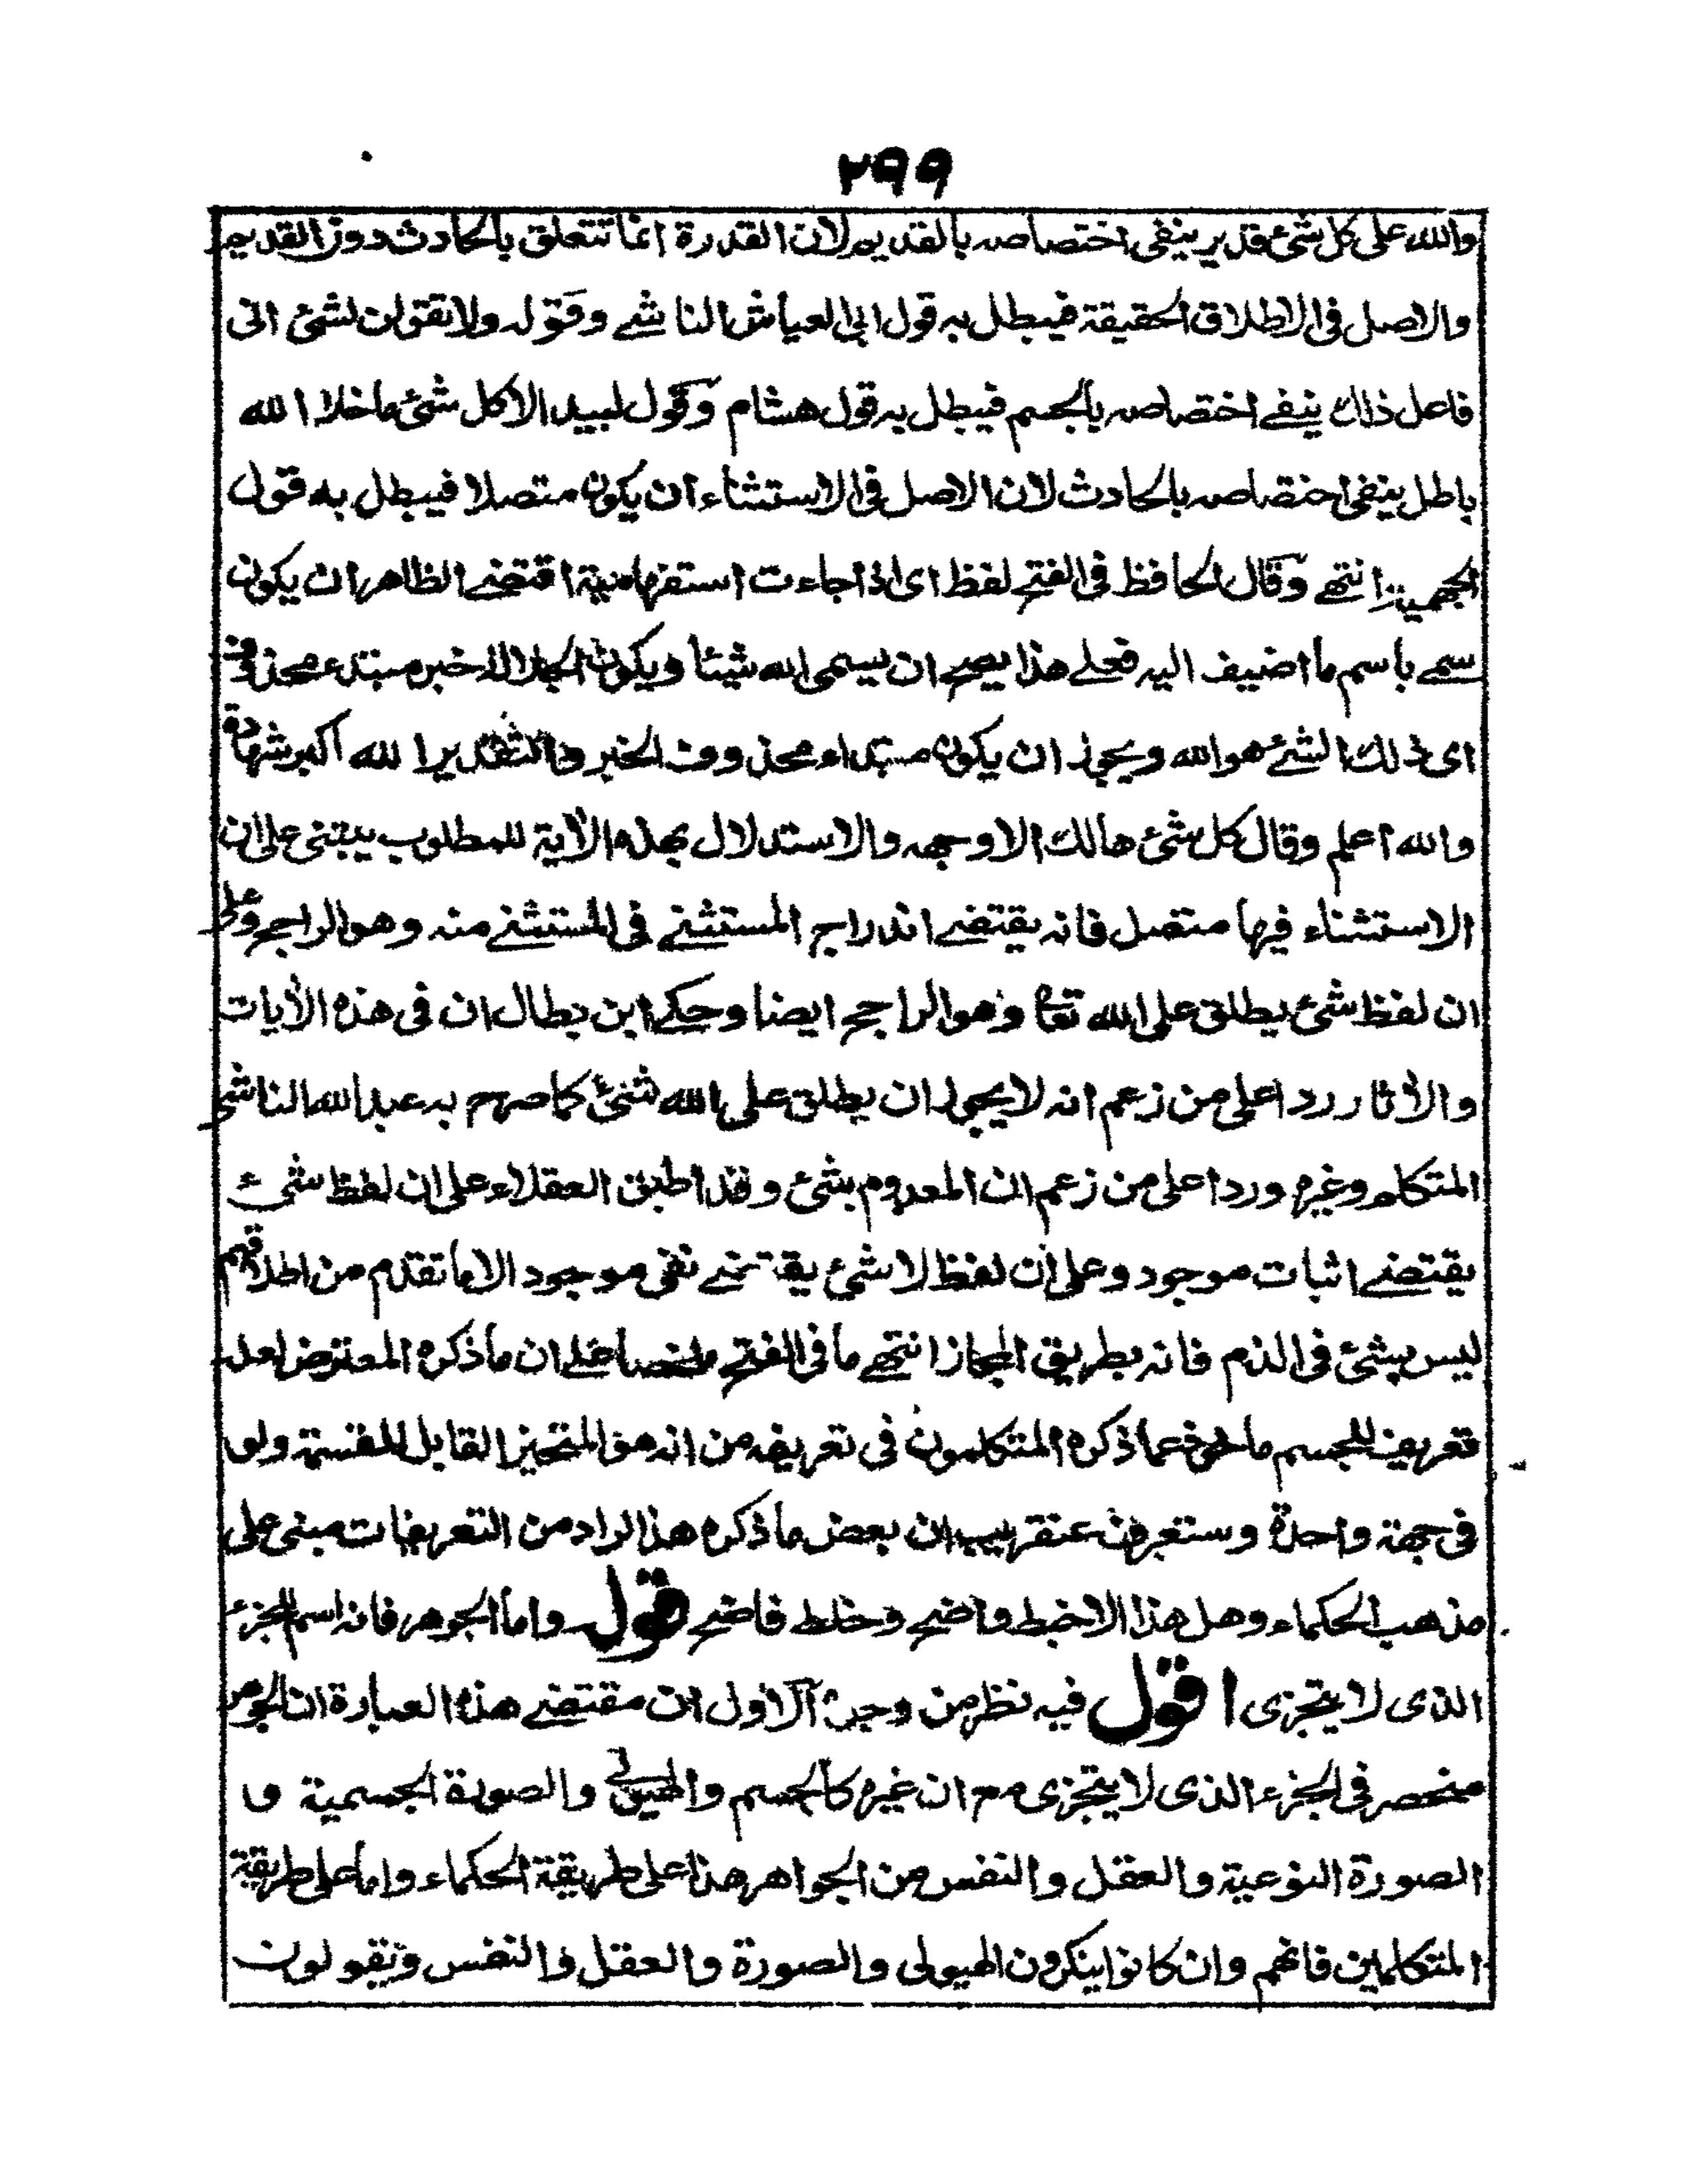 ٢٩٩
والله على كل شئ قدير ينفى اختصاصه بالقديم لان القدرة انما تتعلق بالحادث دون القديم
والاصل فى الاطلاق الحقيقة فيبطل به قول ابى العياش الناشے وقوله ولا تقولن لشئ انى
فاعل ذلك ينفے اختصاصه بالجسم فيبطل به قول هشام وقول لبيد الا كل شئ ما خلا الله
باطل ينفى اختصاصه بالحادث لان الاصل فى الاستثناء ان يكون متصلا فيبطل به قول
الجهمية انتهے وقال الحافظ فى الفتح لفظ اى اذا جاءت استفهامية اقتضے الظاهر ان يكون
سمے باسم ما اضيف اليه فعلے هذا يصح ان يسمى الله شيئا ويكون الجلالة خبر مبتدء محذوف
اى ذلك الشئ هو الله ويجوز ان يكون مبتداء محذوف الخبر والتقدير الله اكبر شهادة
والله اعلم وقال كل شئ هالك الا وجهه والاستدلال بهذه الآية للمطلوب يبتنى على ان
الاستثناء فيها متصل فانه يقتضے اندراج المستثنے فى المستثنے منه وهو الراجح وعلى
ان لفظ شئ يطلق على الله تعا وهو الراجح ايضا وحكے ابن بطال ان فى هذه الآيات
والآثار ردا على من زعم انه لا يجوز ان يطلق على الله شئ كما صرح به عبد الله الناشى
المتكلم وغيره وردا على من زعم ان المعدوم بشئ وقد اطبق العقلاء على ان لفظ شئ
يقتضے اثبات موجود وعلى ان لفظ لا شئ يقتضے نفى موجود الا ما تقدم من اطلاقهم
ليس بشئ فى الذم فانه بطريق المجاز انتهے ما فى الفتح ملخصا على ان ما ذكره المعترض لعله
تعريف للجسم ماخوذ عما ذكره المتكلمون فى تعريفه من انه هو المتحيز القابل للقسمة ولو
فى جهة واحدة وستعرف عنقريب ان بعض ما ذكره هذا الراد من التعريفات مبنى على
مذهب الحكماء وهل هذا الا خبط واضح وخلط فاضح قول واما الجوهر فانه اسم للجزء
الذى لا يتجزى اقول فيه نظر من وجوه الاول ان مقتضے هذه العبارة ان الجوهر
منحصر فى الجزء الذى لا يتجزى مع ان غيره كالجسم والهيولى والصورة الجسمية و
الصورة النوعية والعقل والنفس من الجواهر هذا على طريقة الحكماء واما على طريقة
المتكلمين فانهم وان كانوا ينكرون الهيولى والصورة والعقل والنفس ويقولون